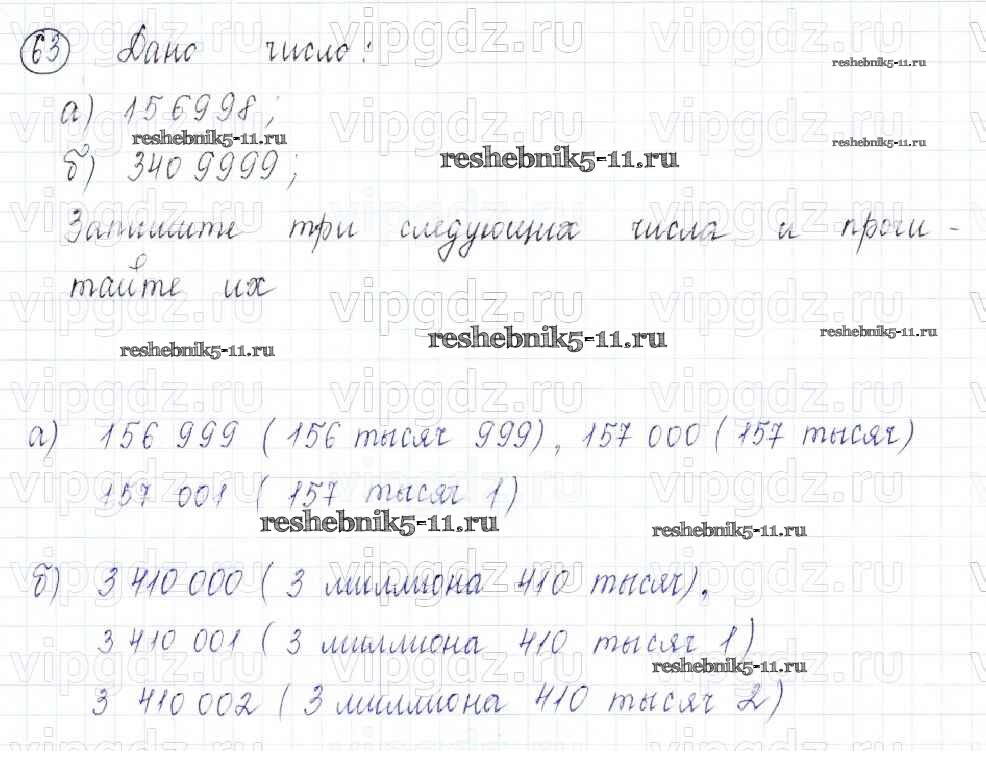 63 Дано число:
а) 156998;
б) 3409999;
Запишите три следующих числа и прочи -
тайте их
а) 156 999 (156 тысяч 999), 157 000 (157 тысяч)
157 001 (157 тысяч 1)
б) 3 410 000 (3 миллиона 410 тысяч),
3 410 001 (3 миллиона 410 тысяч 1)
3 410 002 (3 миллиона 410 тысяч 2)
vipgdz.ru
reshebnik5-11.ru